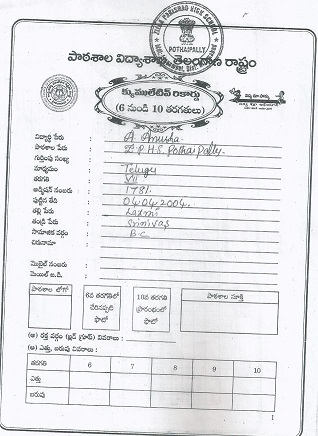 ZILLA PARISHAD HIGH SCHOOL
POTHAIPALLY
పాఠశాల విద్యాశాఖ, తెలంగాణ రాష్ట్రం
క్యుములేటివ్ రికార్డు
(6 నుండి 10 తరగతులు)
విద్యార్థి పేరు : A. Anusha
పాఠశాల పేరు : Z.P.H.S. Pothaipally
గుర్తింపు సంఖ్య :
మాధ్యమం : Telugu
తరగతి : VII
అడ్మిషన్ నంబరు : 1781
పుట్టిన తేది : 04.04.2004
తల్లి పేరు : Laxmi
తండ్రి పేరు : Srinivas
సామాజిక వర్గం : B.C
చిరునామా :
మొబైల్ నంబరు :
మెయిల్ ఐ.డి. :
పాఠశాల లోగో
6వ తరగతిలో చేరినప్పటి ఫొటో
10వ తరగతి ప్రారంభంలో ఫొటో
పాఠశాల సూక్తి
(అ) రక్త వర్గం (బ్లడ్ గ్రూప్) వివరాలు :
(ఆ) ఎత్తు, బరువు వివరాలు :
తరగతి 6 7 8 9 10
ఎత్తు
బరువు
1